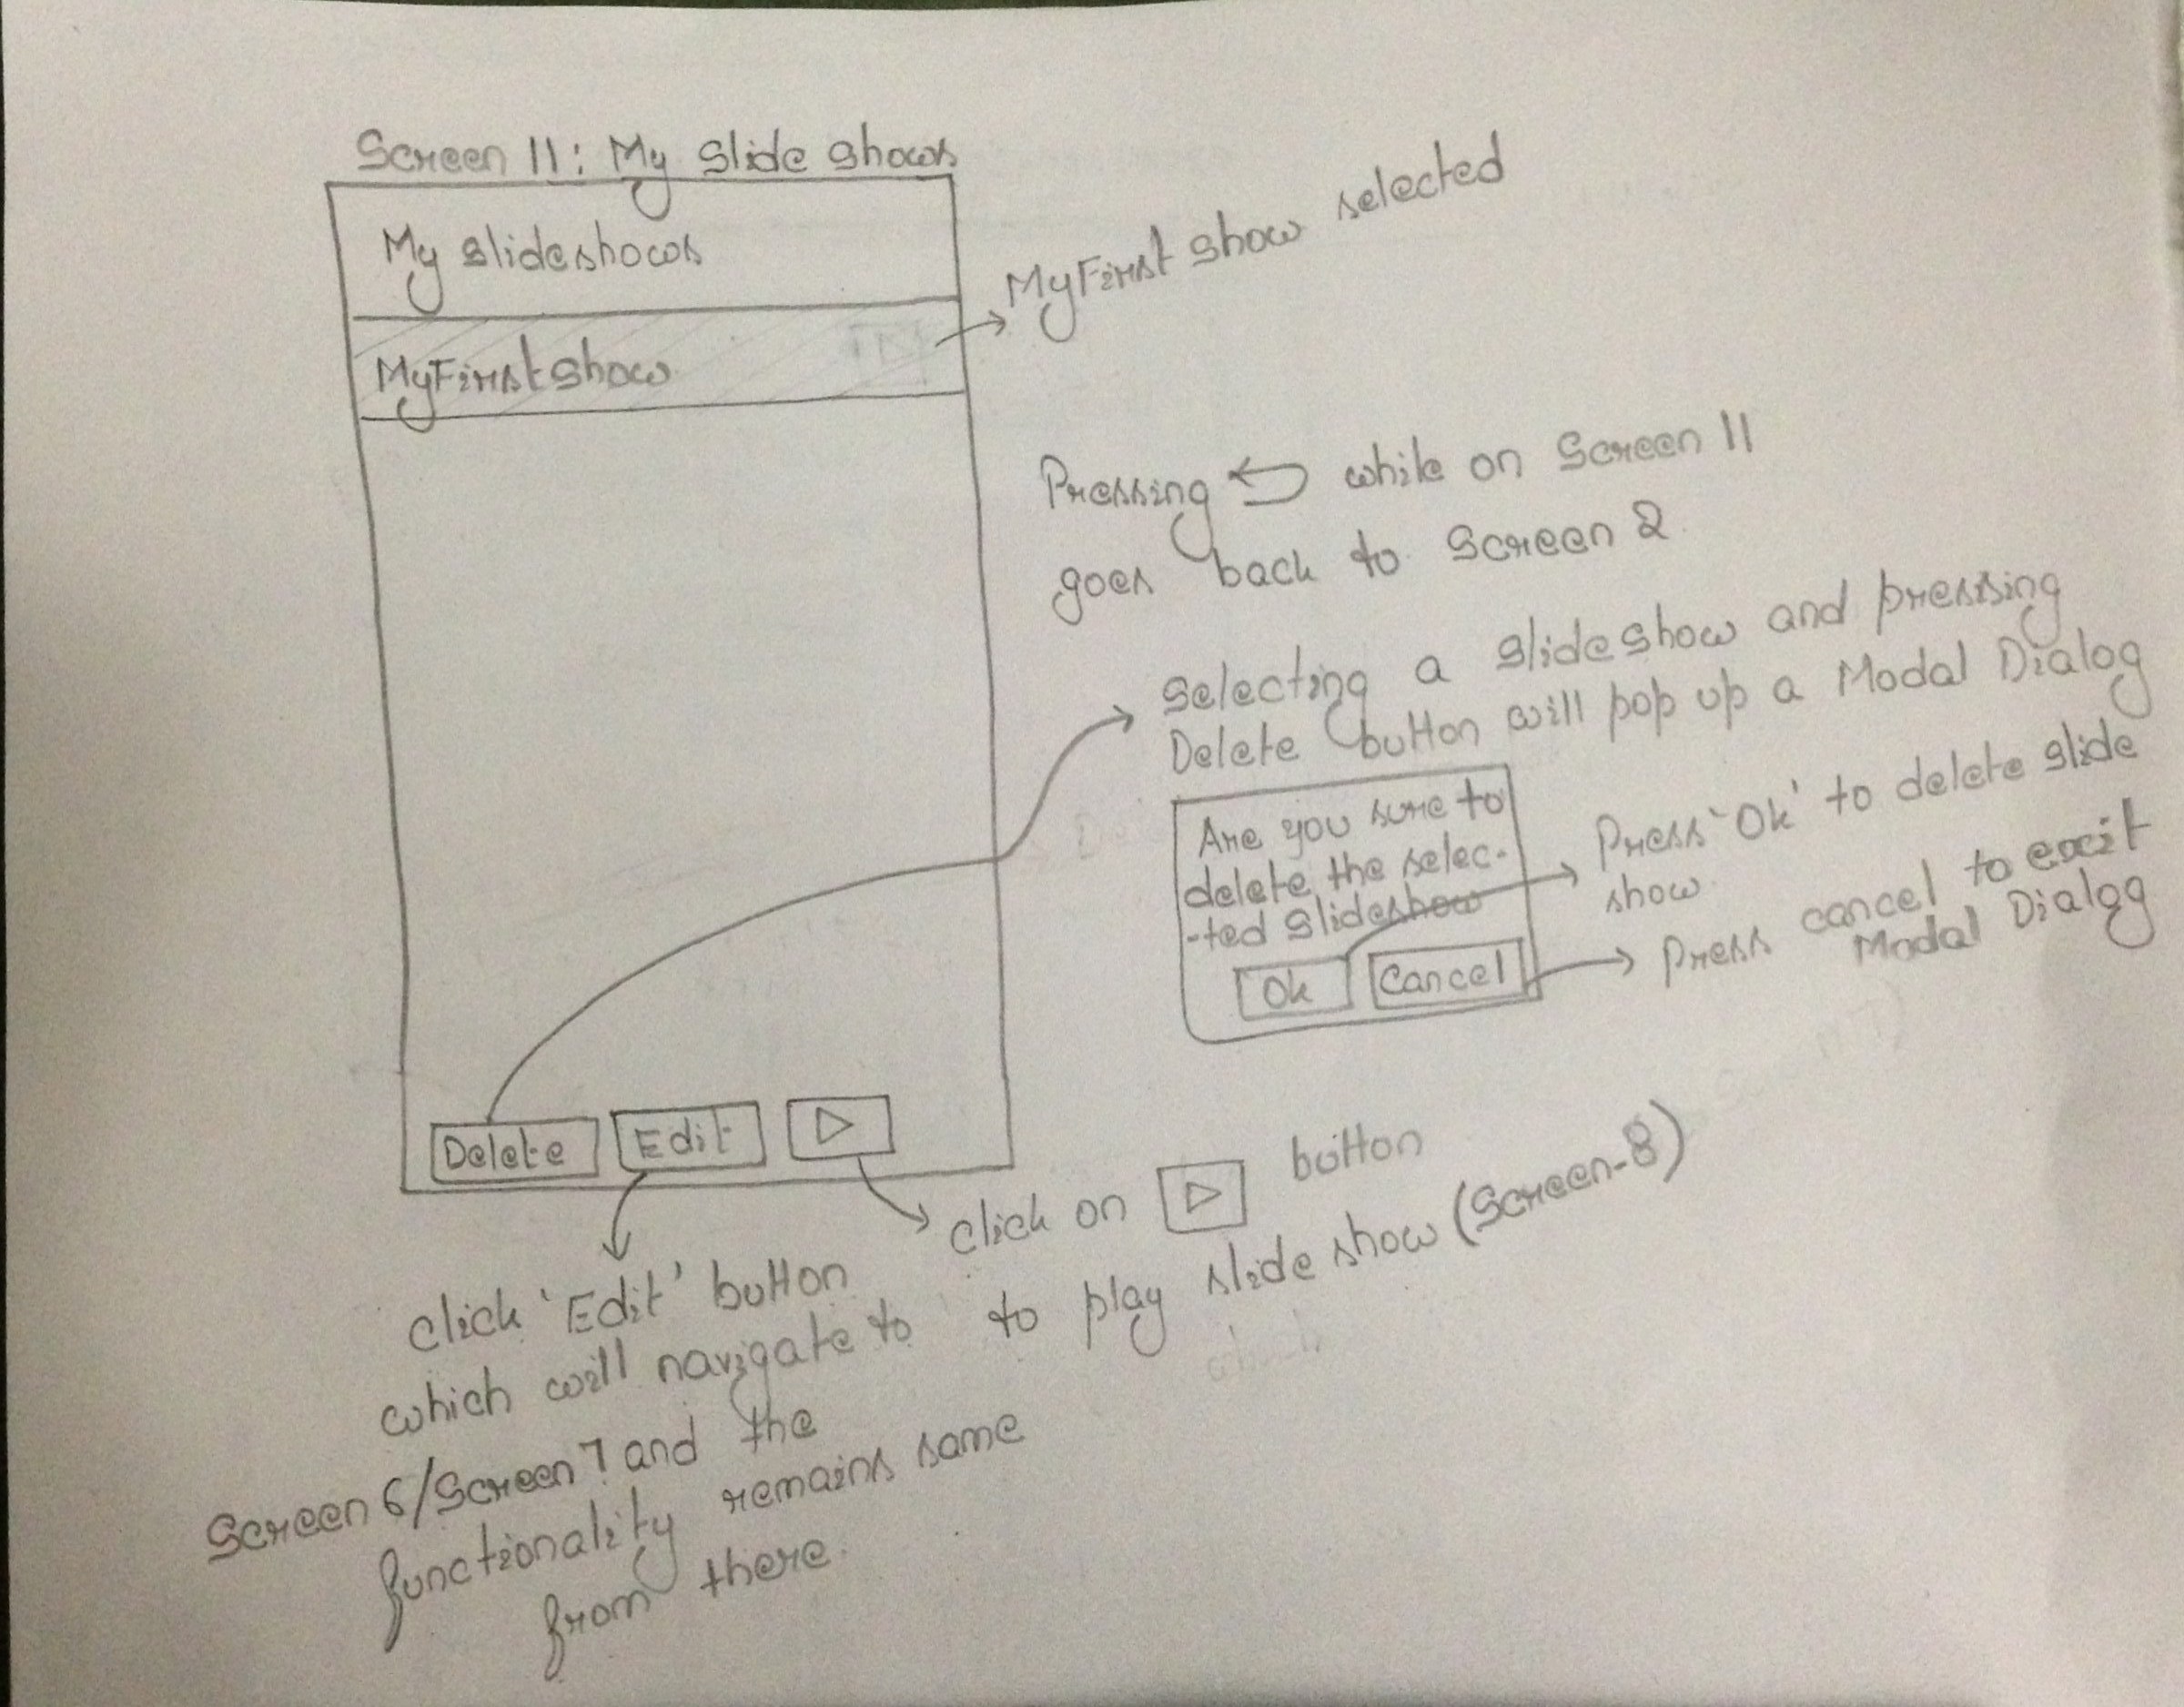 Screen 11: My Slide Shows
My Slideshows
MyFirstShow
MyFirst Show selected
Pressing while on Screen 11
goes back to Screen 2
Selecting a slideshow and pressing
Delete button will pop up a Modal Dialog
Are you sure to
delete the selec-
-ted Slideshow
Ok Cancel
Press 'Ok' to delete slide
show
Press cancel to exit
Modal Dialog
Delete Edit
click on button
to play slide show (Screen-8)
click 'Edit' button
which will navigate to
Screen 6/Screen 7 and the
functionality remains same
from there.